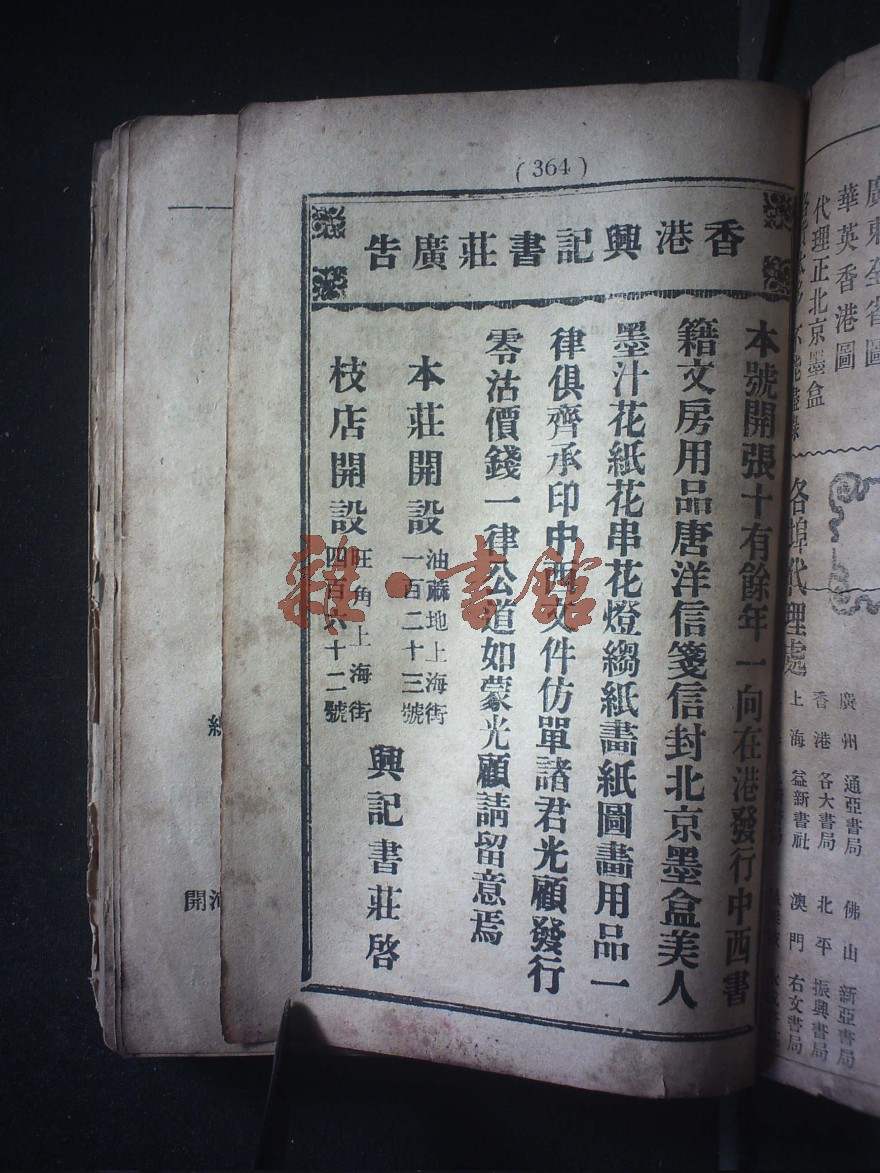 (364)
香港興記書莊廣告
本號開張十有餘年一向在港發行中西書
籍文房用品唐洋信箋信封北京墨盒美人
墨汁花紙花串花燈縐紙畵紙圖畵用品一
律俱齊承印中西文件仿單諸君光顧發行
零沽價錢一律公道如蒙光顧請留意焉
本莊開設
油蔴地上海街
一百二十三號
枝店開設
旺角上海街
四百六十二號
興記書莊啓
雜·書館
廣東全省圖
華英香港圖
代理正北京墨盒
各埠代理處
廣州 通亞書局
佛山 新亞書局
香港 各大書局
北平 振興書局
上海 益新書社
澳門 右文書局